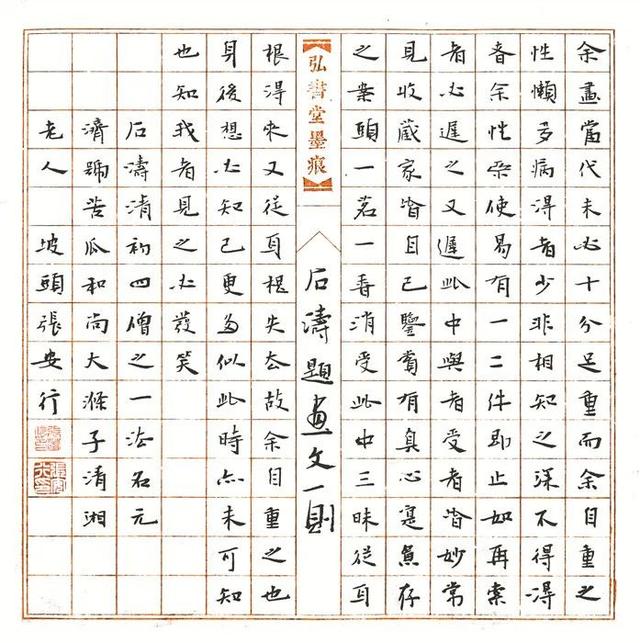 余畫當代未必十分足重而余自重之
性懶多病得者少非相知之深不得得
者余性使易有一二件即止如再索
者必遲之又遲此中與者受者皆妙常
見收藏家皆自己鑒賞有真心寔意存
之案頭一茗一香消受此中三昧從耳
弘書堂墨痕
石濤題画文一則
根得來又從耳根失去故余自重之也
身後想必知己更為似此時亦未可知
也知我者見之必發笑
石濤清初四僧之一法名元
濟號苦瓜和尚大滌子清湘
老人 坡頭張安行